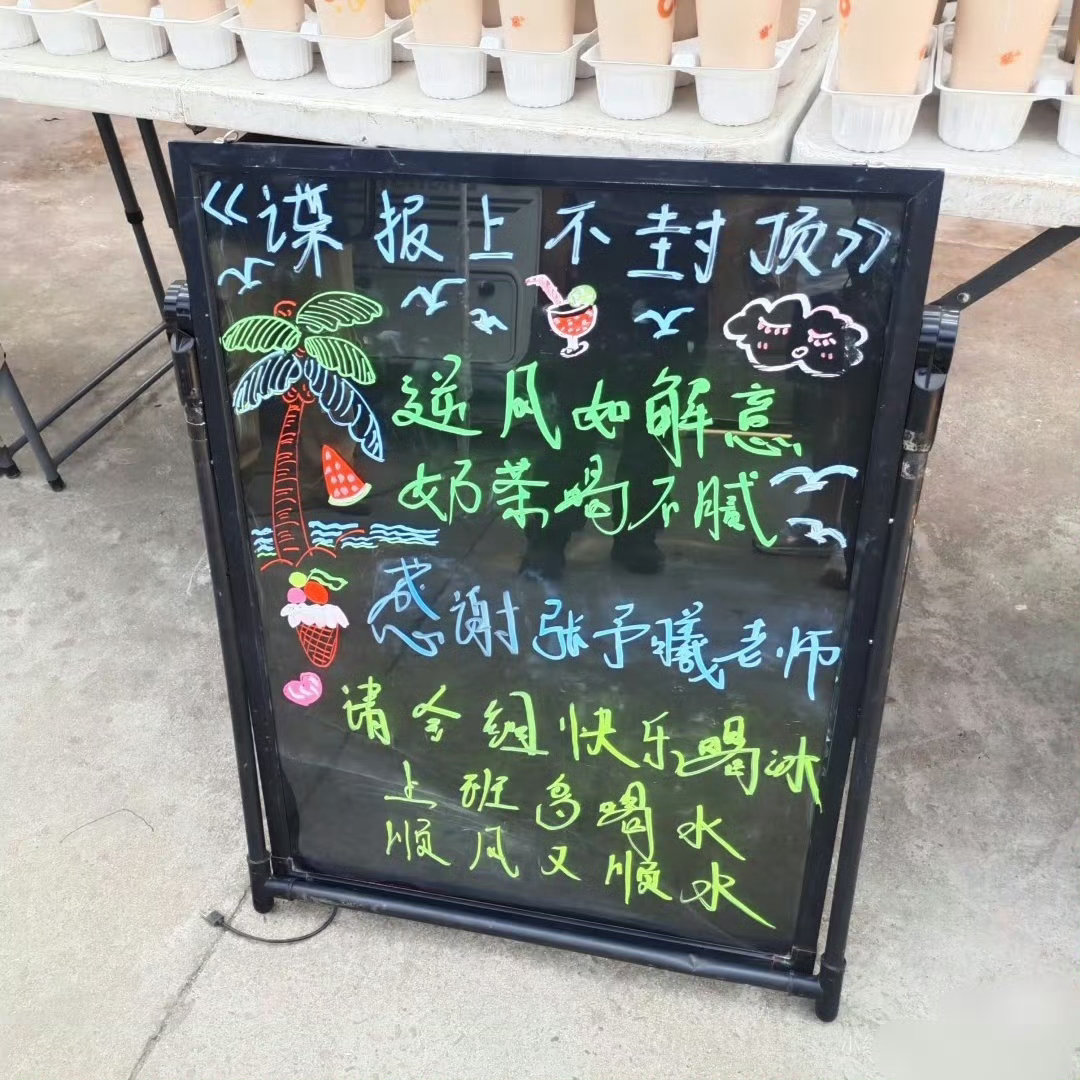 《谍报上不封顶》
逆风如解意
奶茶喝不腻
感谢张予曦老师
请全组快乐喝冰
上班多喝水
顺风又顺水